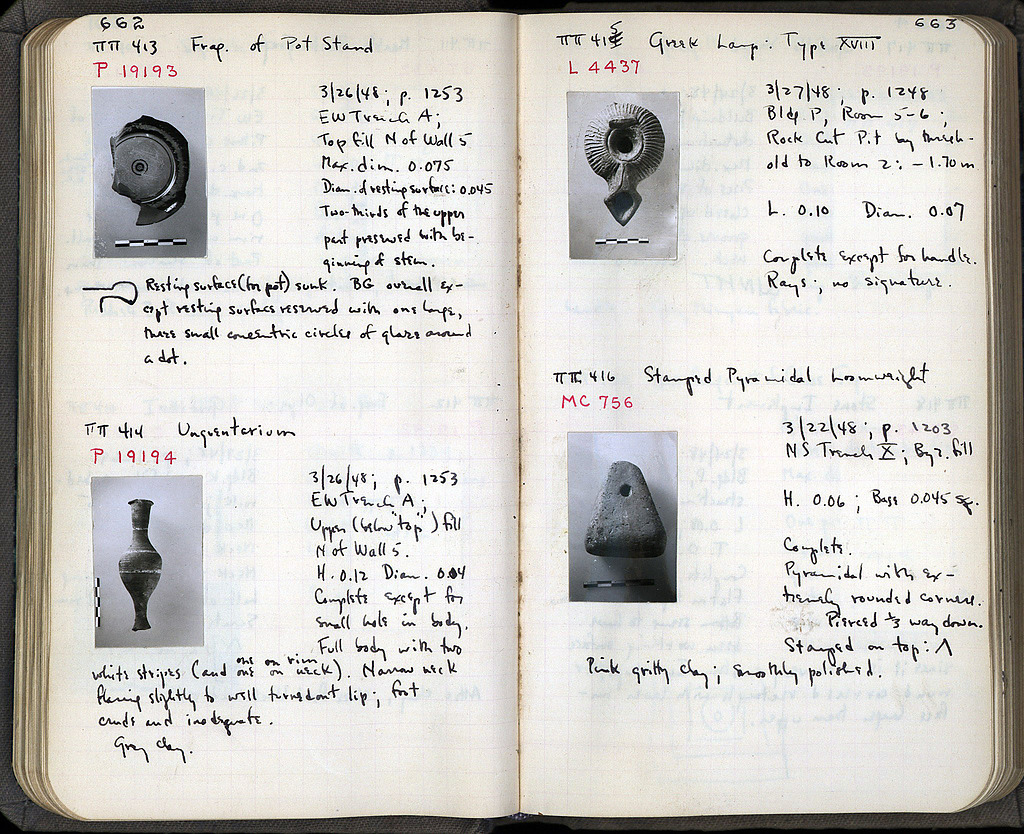 662
ΠΠ 413 Frag. of Pot Stand
P 19193
3/26/48; p. 1253
EW Trench A;
Top fill N of Wall 5
Max. dim. 0.075
Diam. of resting surface: 0.045
Two-thirds of the upper
part preserved with be-
ginning of stem.
Resting surface (for pot) sunk. BG overall ex-
cept resting surface reserved with one large,
three small concentric circles of glaze around
a dot.
ΠΠ 414 Unguentarium
P 19194
3/26/48; p. 1253
EW Trench A;
Upper (below "top") fill
N of Wall 5.
H. 0.12 Diam. 0.04
Complete except for
small hole in body.
Full body with two
white stripes (and one on rim, one on neck). Narrow neck
flaring slightly to well turned out lip; foot
crude and inadequate.
Gray clay.
663
ΠΠ 415 Greek Lamp: Type XVIII
L 4437
3/27/48; p. 1248
Bldg. P, Room 5-6;
Rock Cut Pit by thresh-
old to Room 2: -1.70 m
L. 0.10 Diam. 0.07
Complete except for handle.
Rays; no signature.
ΠΠ 416 Stamped Pyramidal Loomweight
MC 756
3/22/48; p. 1203
NS Trench X; Byz. fill
H. 0.06; Base 0.045 sq.
Complete.
Pyramidal with ex-
tremely rounded corners.
Pierced 1/3 way down.
Stamped on top: Λ
Pink gritty clay; smoothly polished.